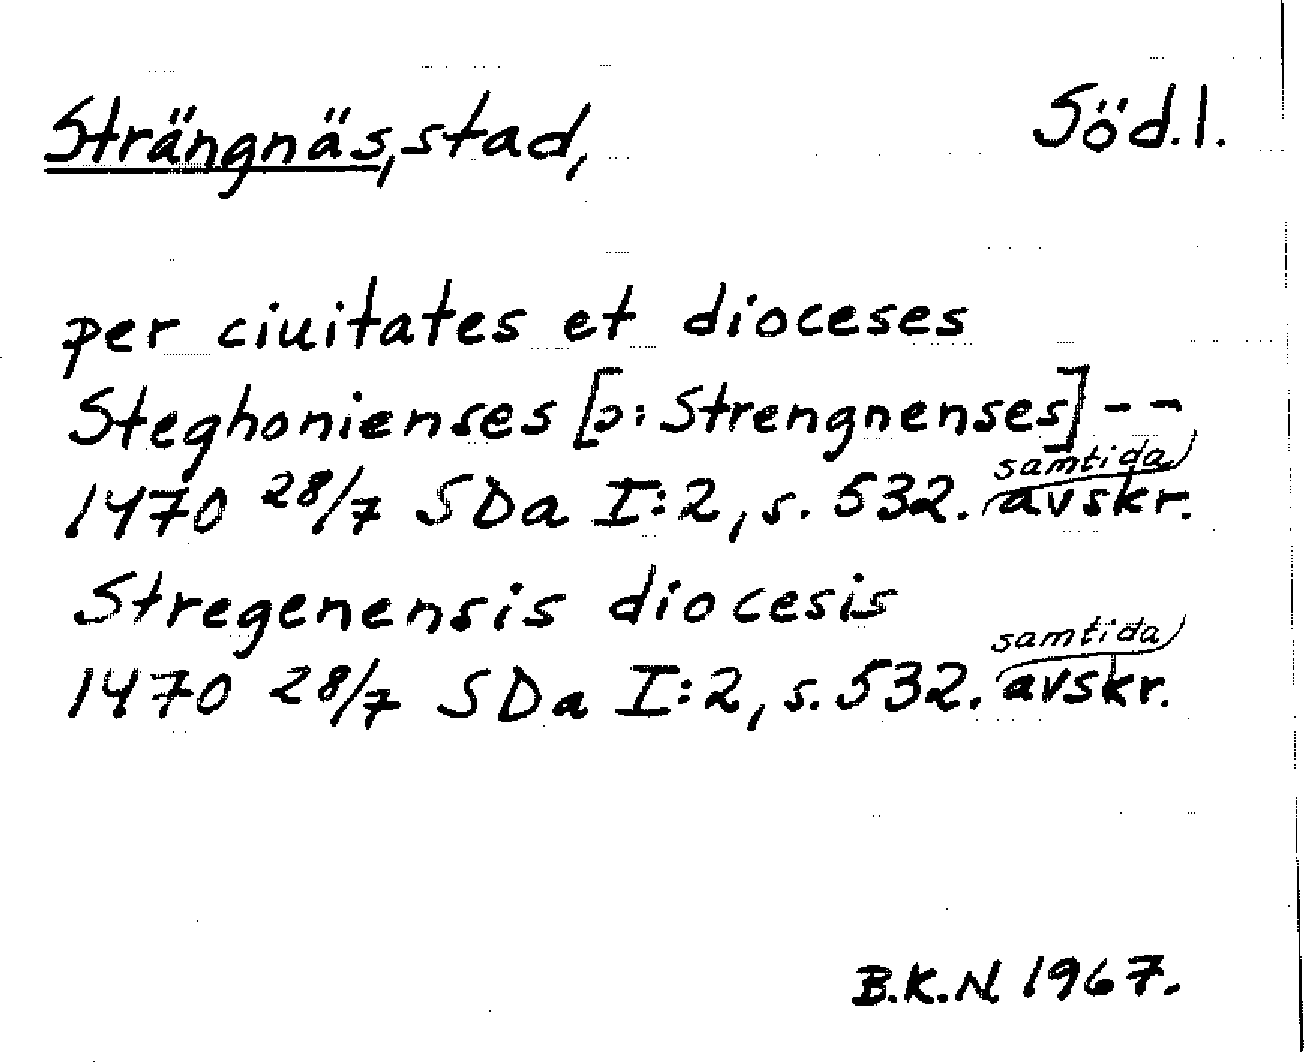 Strängnäs, stad, Söd.l.
per ciuitates et dioceses
Steghonienses [ɔ: Strengnenses] --
1470 28/7 SDa I:2, s. 532. samtida avskr.
Stregenensis diocesis
1470 28/7 SDa I:2, s. 532. samtida avskr.
B.K.N. 1967.